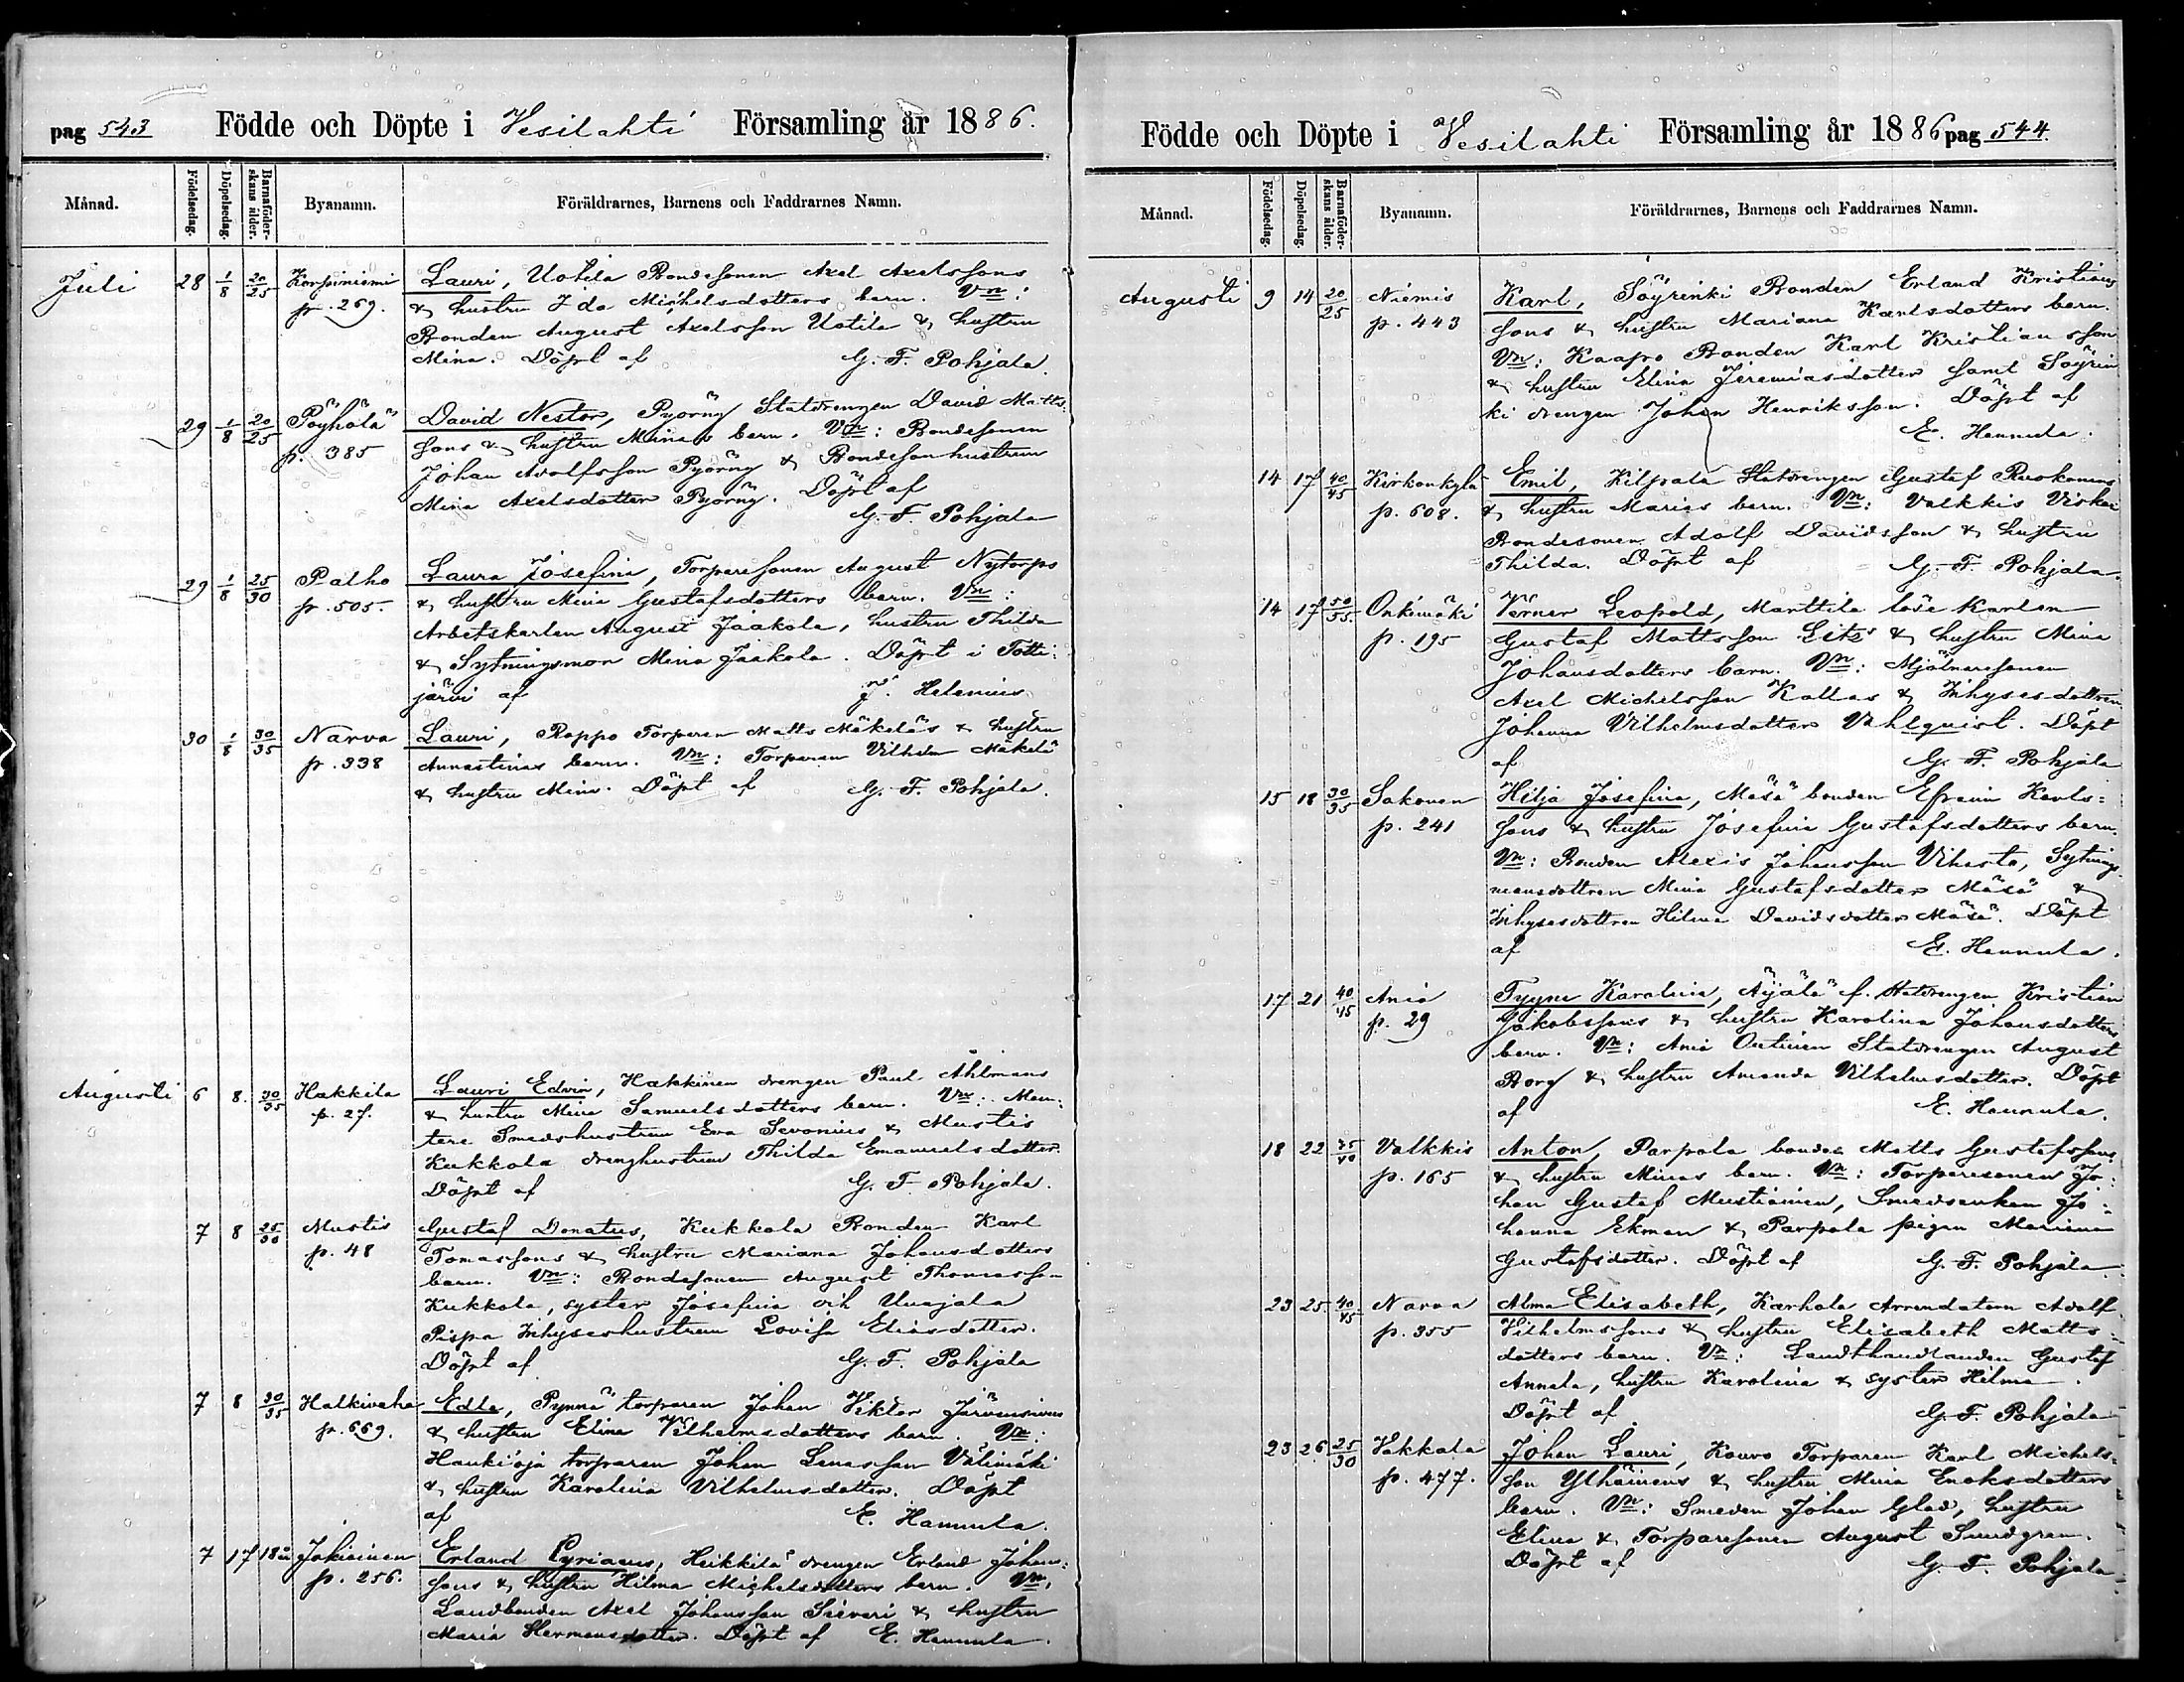 pag 543 Födde och Döpte i Vesilahti Församling år 1886.
Månad. Födelsedag. Döpelsedag. Barnaföderskans ålder. Byanamn. Föräldrarnes, Barnens och Faddrarnes Namn.
Juli 28 1/8 20/25 Korpiniemi Lauri, Uotila Bondesonen Axel Axelssons
p. 269. & hustru Ida Michelsdotters barn. Vn:
Bonden August Axelsson Uotila & hustru
Mina. Döpt af G. F. Pohjala.
29 1/8 20/25 Pöyhölä David Nestor, Pyörny Statdrengen David Matts-
p. 385 sons & hustru Minas barn. Vn: Bondesonen
Johan Adolfsson Pyörny & Bondesonhustrun
Mina Axelsdotter Pyörny. Döpt af
G. F. Pohjala
29 1/8 25/30 Palho Laura Josefina, Torparesonen August Nytorps
p. 505. & hustru Mina Gustafsdotters barn. Vn:
Arbetskarlen August Jaakola, hustru Thilda
& Sytningsmor Mina Jaakola. Döpt i Totti-
järvi af J. Helenius.
30 1/8 30/35 Narva Lauri, Roppo Torparen Matts Mäkeläs & hustru
p. 338 Annastinas barn. Vn: Torparen Vilhelm Mäkelä
& hustru Mina. Döpt af G. F. Pohjala.
Augusti 6 8. 30/35 Hakkila Lauri Edvin, Hakkinen drengen Paul Ahlmans
p. 27. & hustru Mina Samuelsdotters barn. Vn: Man-
tere Smedshustrun Eva Sevonius & Mustis
Kukkola drenghustrun Thilda Emanuelsdotter.
Döpt af G. F. Pohjala.
7 8 25/30 Mustis Gustaf Donatus, Kukkola Bonden Karl
p. 48 Tomassons & hustru Mariana Johansdotters
barn. Vn: Bondesonen August Thomasson
Kukkola, syster Josefina och Unajala
Pispa Inhyseshustrun Lovisa Eliasdotter.
Döpt af G. F. Pohjala
7 8 30/35 Halkivaha Edla, Pynnä torparen Johan Viktor Järvensivus
p. 669. & hustru Elina Vilhelmsdotters barn. Vn:
Haukioja torparen Johan Enasson Välimäki
& hustru Karolina Vilhelmsdotter. Döpt
af E. Hannula.
7 17 18 år Jokioinen Erland Cyriacus, Heikkilä drengen Erland Johans-
p. 256. sons & hustru Hilma Michelsdotters barn. Vn,
Landbonden Axel Johansson Sieveri & hustru
Maria Hermansdotter. Döpt af E. Hannula.
Födde och Döpte i Vesilahti Församling år 1886 pag 544.
Månad. Födelsedag. Döpelsedag. Barnaföderskans ålder. Byanamn. Föräldrarnes, Barnens och Faddrarnes Namn.
Augusti 9 14 20/25 Niemis Karl, Söyrinki Bonden Erland Kristians
p. 443 sons & hustru Mariana Karlsdotters barn.
Vn: Kaapo Bonden Karl Kristiansson
& hustru Elina Jeremiasdotter samt Söyrin
ki drengen Johan Henriksson. Döpt af
E. Hannula.
14 17 40/45 Kirkonkylä Emil, Kilpala Statdrengen Gustaf Ruokonens
p. 608. & hustru Marias barn. Vn: Valkkis Viskari
Bondesonen Adolf Davidsson & hustru
Thilda. Döpt af G. F. Pohjala.
14 17 50/55. Onkimäki Verner Leopold, Marttila löse Karlen
p. 195 Gustaf Mattsson Eits & hustru Mina
Johansdotters barn. Vn: Mjölnaresonen
Axel Michelsson Kallas & Inhysesdottren
Johanna Vilhelmsdotter Vahlquist. Döpt
af G. F. Pohjala
15 18 30/35 Sakonen Hilja Josefina, Mäsä bonden Efraim Karls-
p. 241 sons & hustru Josefina Gustafsdotters barn.
Vn: Bonden Alexis Johansson Vihasto, Sytnings
mansdottren Mina Gustafsdotter Mäsä &
Inhysesdottren Hilma Davidsdotter Mäsä. Döpt
af E. Hannula.
17 21 40/45 Ania Tyyne Karolina, Äijälä f. statdrengen Kristian
p. 29 Jakobssons & hustru Karolina Johansdotters
barn. Vn: Ania Outinen Statdrengen August
Borg & hustru Amanda Vilhelmsdotter. Döpt
af E. Hannula.
18 22 35/40 Valkkis Anton, Parpala bonden Matts Gustafssons
p. 165 & hustru Minas barn. Vn: Torparesonen Jo-
han Gustaf Mustiainen, Smedsenkan Jo-
hanna Ekman & Parpala pigan Mariana
Gustafsdotter. Döpt af G. F. Pohjala.
23 25 40/45 Narva Alma Elisabeth, Karhola Arrendatorn Adolf
p. 355 Vilhelmssons & hustru Elisabeth Matts-
dotters barn. Vn: Landthandlanden Gustaf
Annala, hustru Karolina & syster Hilma.
Döpt af G. F. Pohjala
23 26 25/30 Vakkala Johan Lauri, Kouvo Torparen Karl Michels-
p. 477. son Ylhäinens & hustru Mina Enoksdotters
barn. Vn: Smeden Johan Glad, hustru
Elina & Torparesonen August Sundgren.
Döpt af G. F. Pohjala